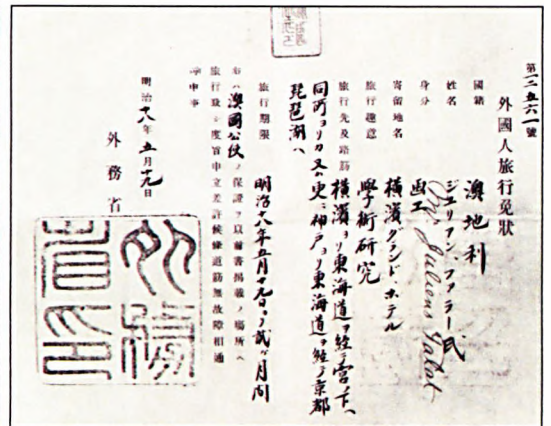 第一二五六一號
外國人旅行免狀
國籍 澳地利
姓名 ジユリアン、フアラー氏
Mr Julian
身分 画工
寄留地名 横濱グランド、ホテル
旅行趣意 學術研究
旅行先及路筋 横濱ヨリ東海道ヲ経テ宮ノ下ヘ
同所ヨリ又更ニ神戸ヨリ東海道ヲ経テ京都
琵琶湖ヘ
旅行期限 明治十八年五月十九日ヨリ貳ヶ月間
右ハ澳國公使ノ保證ヲ以前書掲載ノ場所ヘ
旅行致シ度旨申立差許候條道筋無故障相通
可申事
明治十八年五月十九日
外務省
外務省印